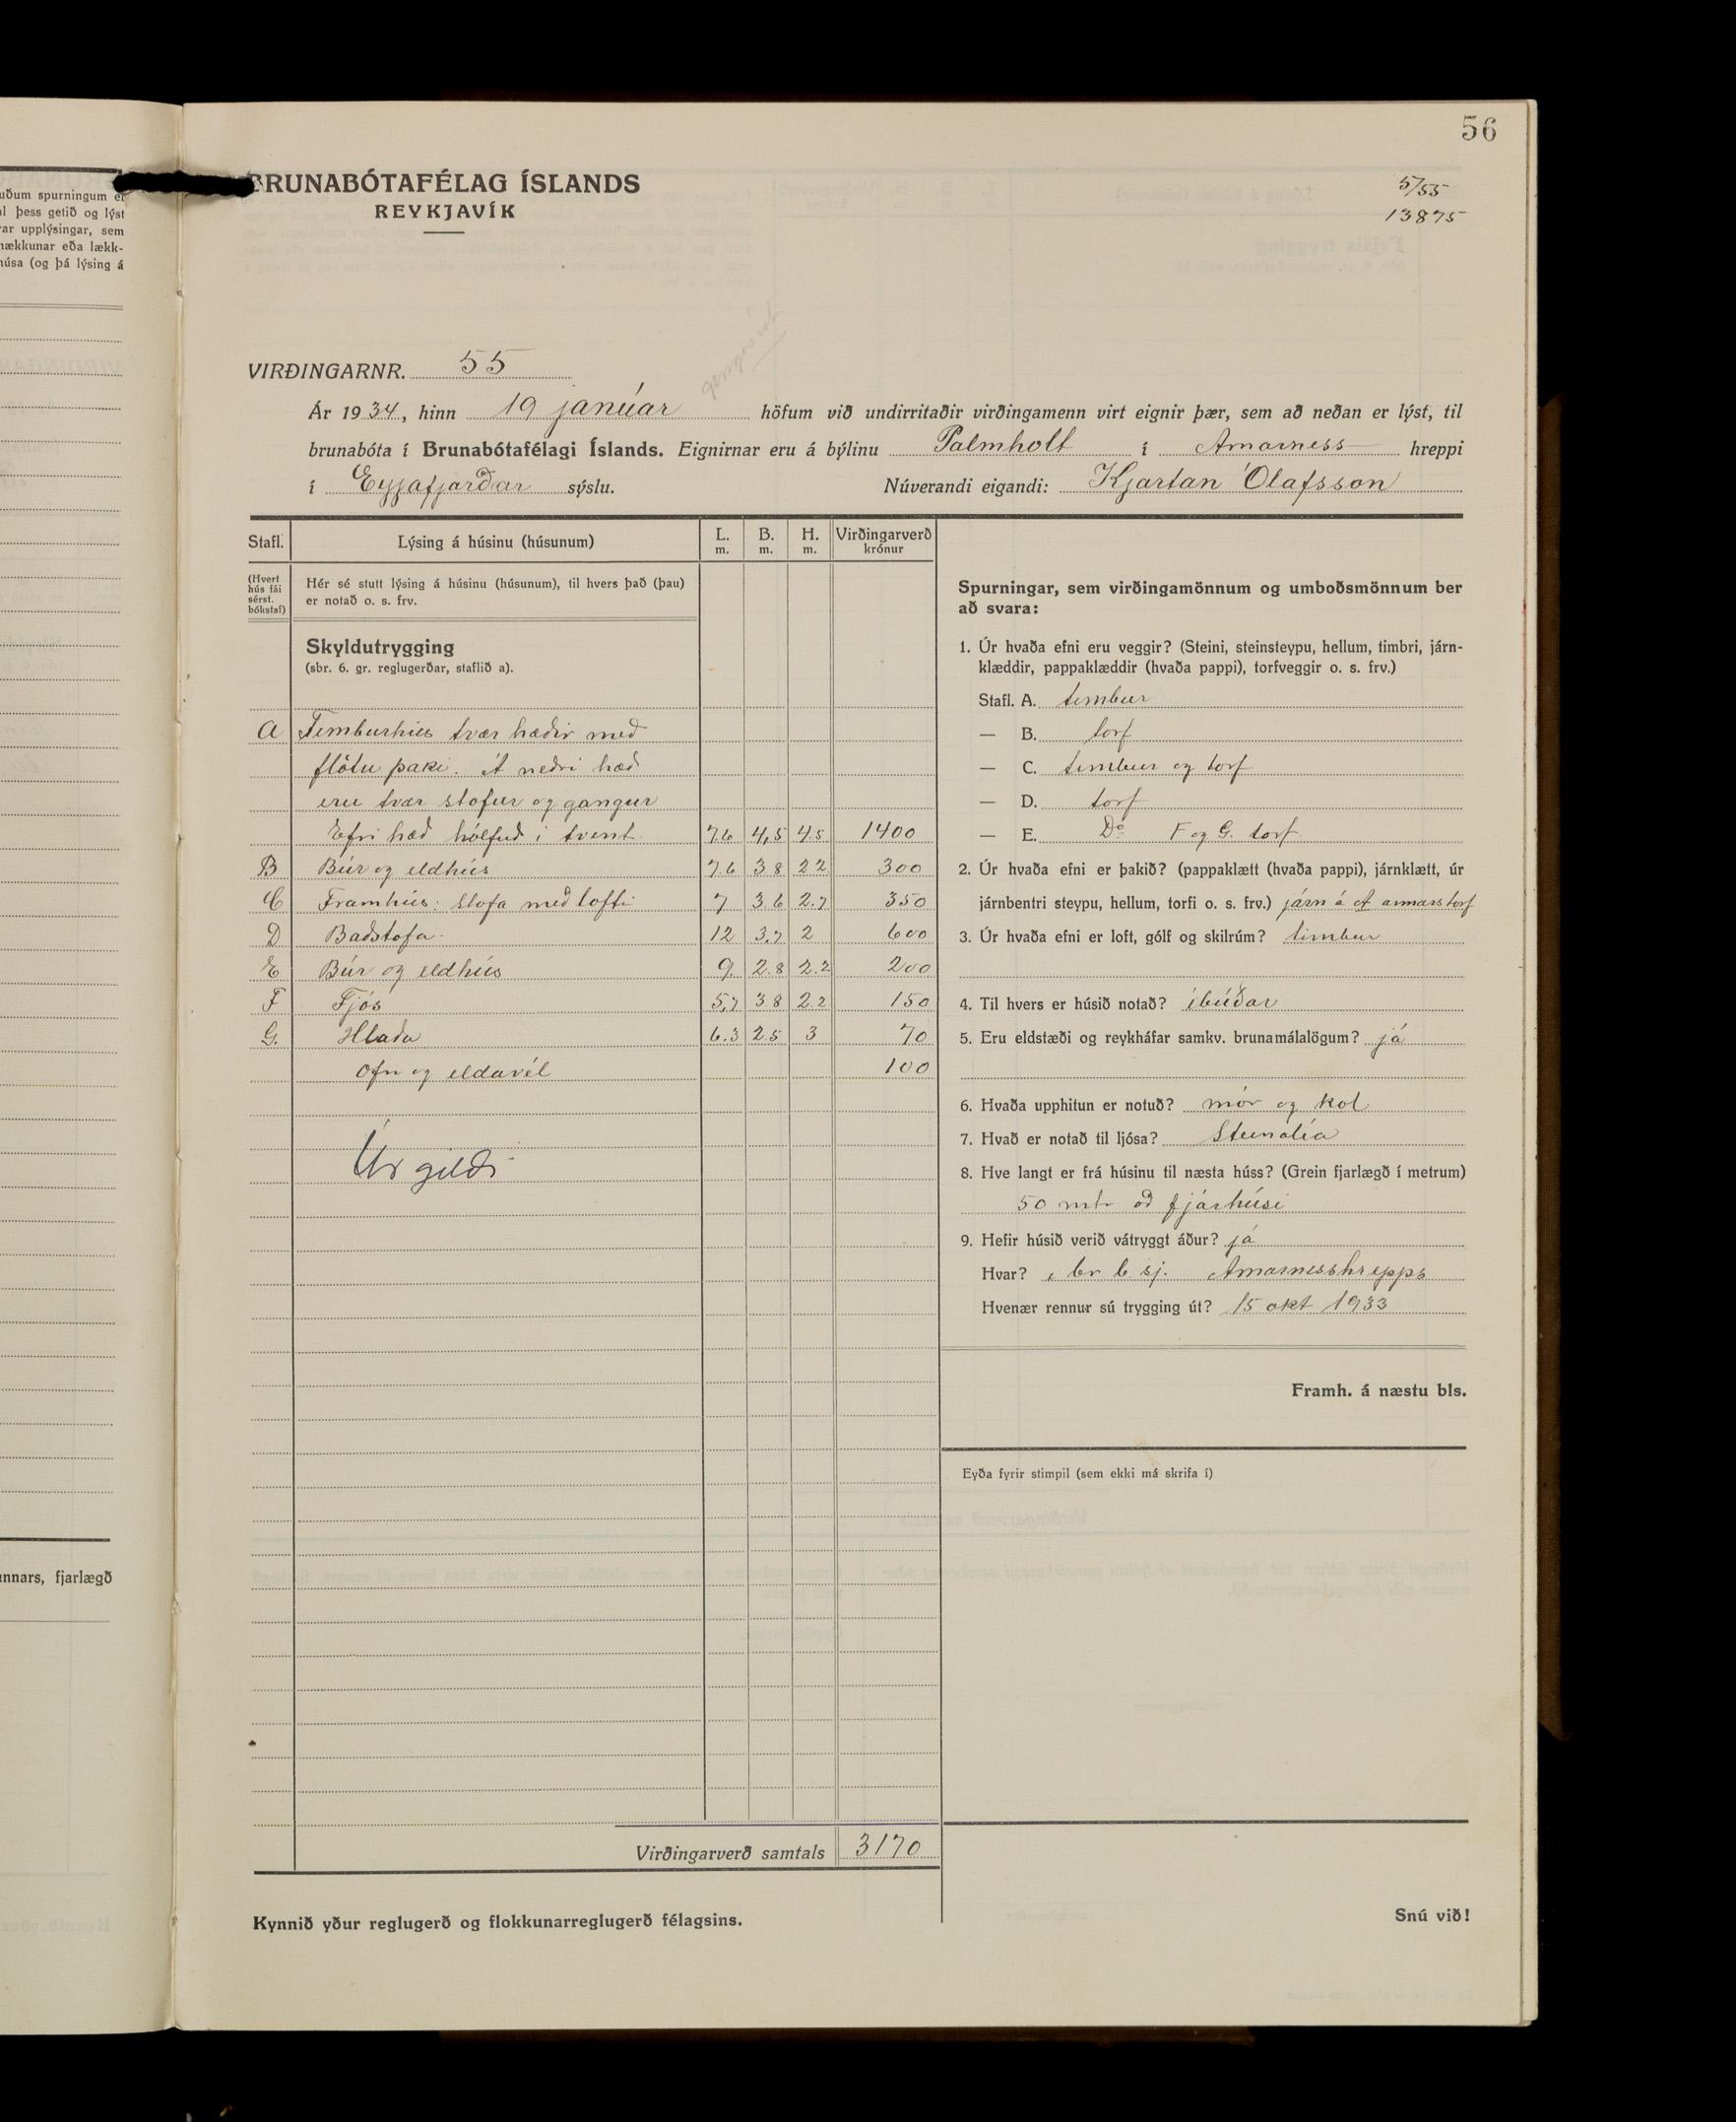 uðum spurningum er
l þess getið og lýst
rar upplýsingar, sem
hækkunar eða lækk-
húsa (og þá lýsing á
nnars, fjarlægð
56
BRUNABÓTAFÉLAG ÍSLANDS
REYKJAVÍK
5/55
13875
gengið út
VIRÐINGARNR. 55
Ár 1934, hinn 19 janúar höfum við undirritaðir virðingamenn virt eignir þær, sem að neðan er lýst, til
brunabóta í Brunabótafélagi Íslands. Eignirnar eru á býlinu Pálmholt í Arnarness hreppi
í Eyjafjarðar sýslu. Núverandi eigandi: Kjartan Ólafsson
Stafl. Lýsing á húsinu (húsunum) L. m. B. m. H. m. Virðingarverð krónur
(Hvert hús fái sérst. bókstaf)
Hér sé stutt lýsing á húsinu (húsunum), til hvers það (þau)
er notað o. s. frv.
Skyldutrygging
(sbr. 6. gr. reglugerðar, staflið a).
A Timburhús tvær hæðir með
flötu þaki. Á neðri hæð
eru tvær stofur og gangur
Efri hæð hólfuð í tvent 7.6 4,5 4.5 1400
B Búr og eldhús 7.6 3.8 2.2 300
C Framhús: Stofa með lofti 7 3.6 2.7 350
D Baðstofa 12 3.7 2 600
E Búr og eldhús 9. 2.8 2.2 200
F Fjós 5,7 3.8 2.2 150
G. Hlaða 6.3 2.5 3 70
Ofn og eldavél 100
Úr gildi
Virðingarverð samtals 3170
Kynnið yður reglugerð og flokkunarreglugerð félagsins.
Spurningar, sem virðingamönnum og umboðsmönnum ber
að svara:
1. Úr hvaða efni eru veggir? (Steini, steinsteypu, hellum, timbri, járn-
klæddir, pappaklæddir (hvaða pappi), torfveggir o. s. frv.)
Stafl. A. timbur
— B. torf
— C. timbur og torf
— D. torf
— E. Do F og G. torf
2. Úr hvaða efni er þakið? (pappaklætt (hvaða pappi), járnklætt, úr
járnbentri steypu, hellum, torfi o. s. frv.) járn á A annars torf
3. Úr hvaða efni er loft, gólf og skilrúm? timbur
4. Til hvers er húsið notað? íbúðar
5. Eru eldstæði og reykháfar samkv. brunamálalögum? já
6. Hvaða upphitun er notuð? mór og kol
7. Hvað er notað til ljósa? Steinolía
8. Hve langt er frá húsinu til næsta húss? (Grein fjarlægð í metrum)
50 mtr að fjárhúsi
9. Hefir húsið verið vátryggt áður? já
Hvar? í br b sj. Arnarnesshrepps
Hvenær rennur sú trygging út? 15 okt 1933
Framh. á næstu bls.
Eyða fyrir stimpil (sem ekki má skrifa í)
Snú við!